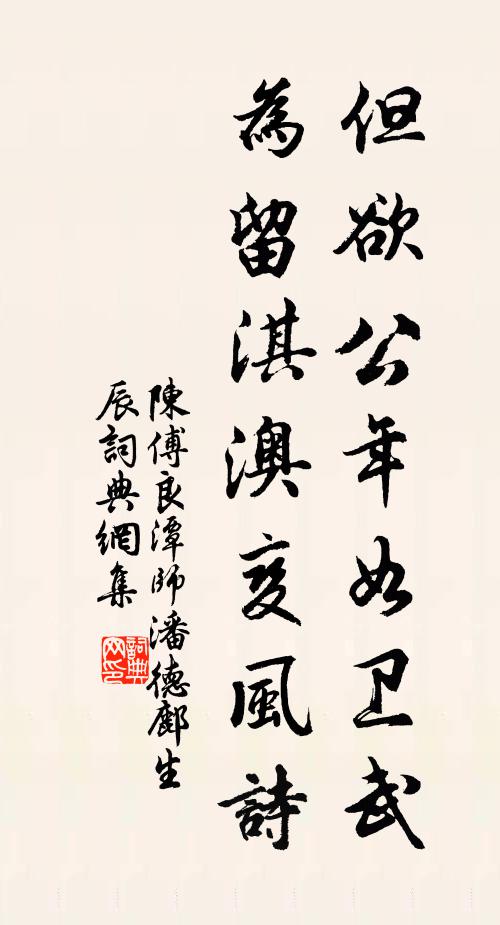 但欲公年如卫武
為留淇澳变風詩
陳傅良潭师潘德鄜生
辰詞典網集
詞典
网印